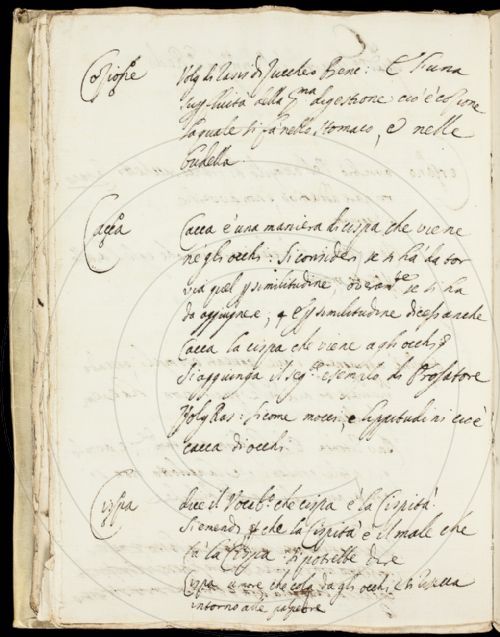 Volg: di Rasis di Zucchero Bene: E l'una
superfluità della p.ma digestione cioè cozione
la quale si fà nello stomaco, e nelle
budella.
Cacca
Cacca è una maniera di cispa che viene
ne gli occhi: si consideri se si hà da tor
via quel similitudine overam.te se si ha
da aggiugnere, similitudine dicesi anche
Cacca la cispa che viene a gli occhi,
Si aggiunga il seg.te esempio di Prosatore
Volg Ras: Sicome mocci, e lippitudini cioè
cacca di occhi
Cispa
dice il Vocab.o che cispa è la Cispità
Si emendi che la Cispità è il male che
fà la Cispa si potrebbe dire
Cispa umore che cola da gli occhi e si
intorno alle palpebre